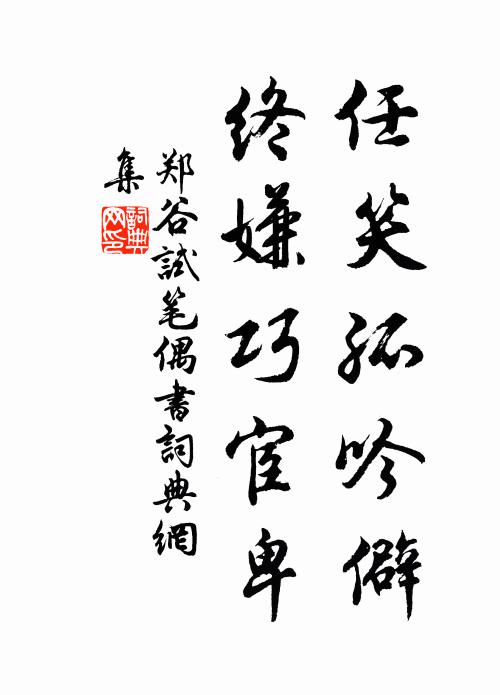 任笑孤吟僻
终嫌巧宦卑
郑谷試笔偶書詞典網
集
詞典
网印